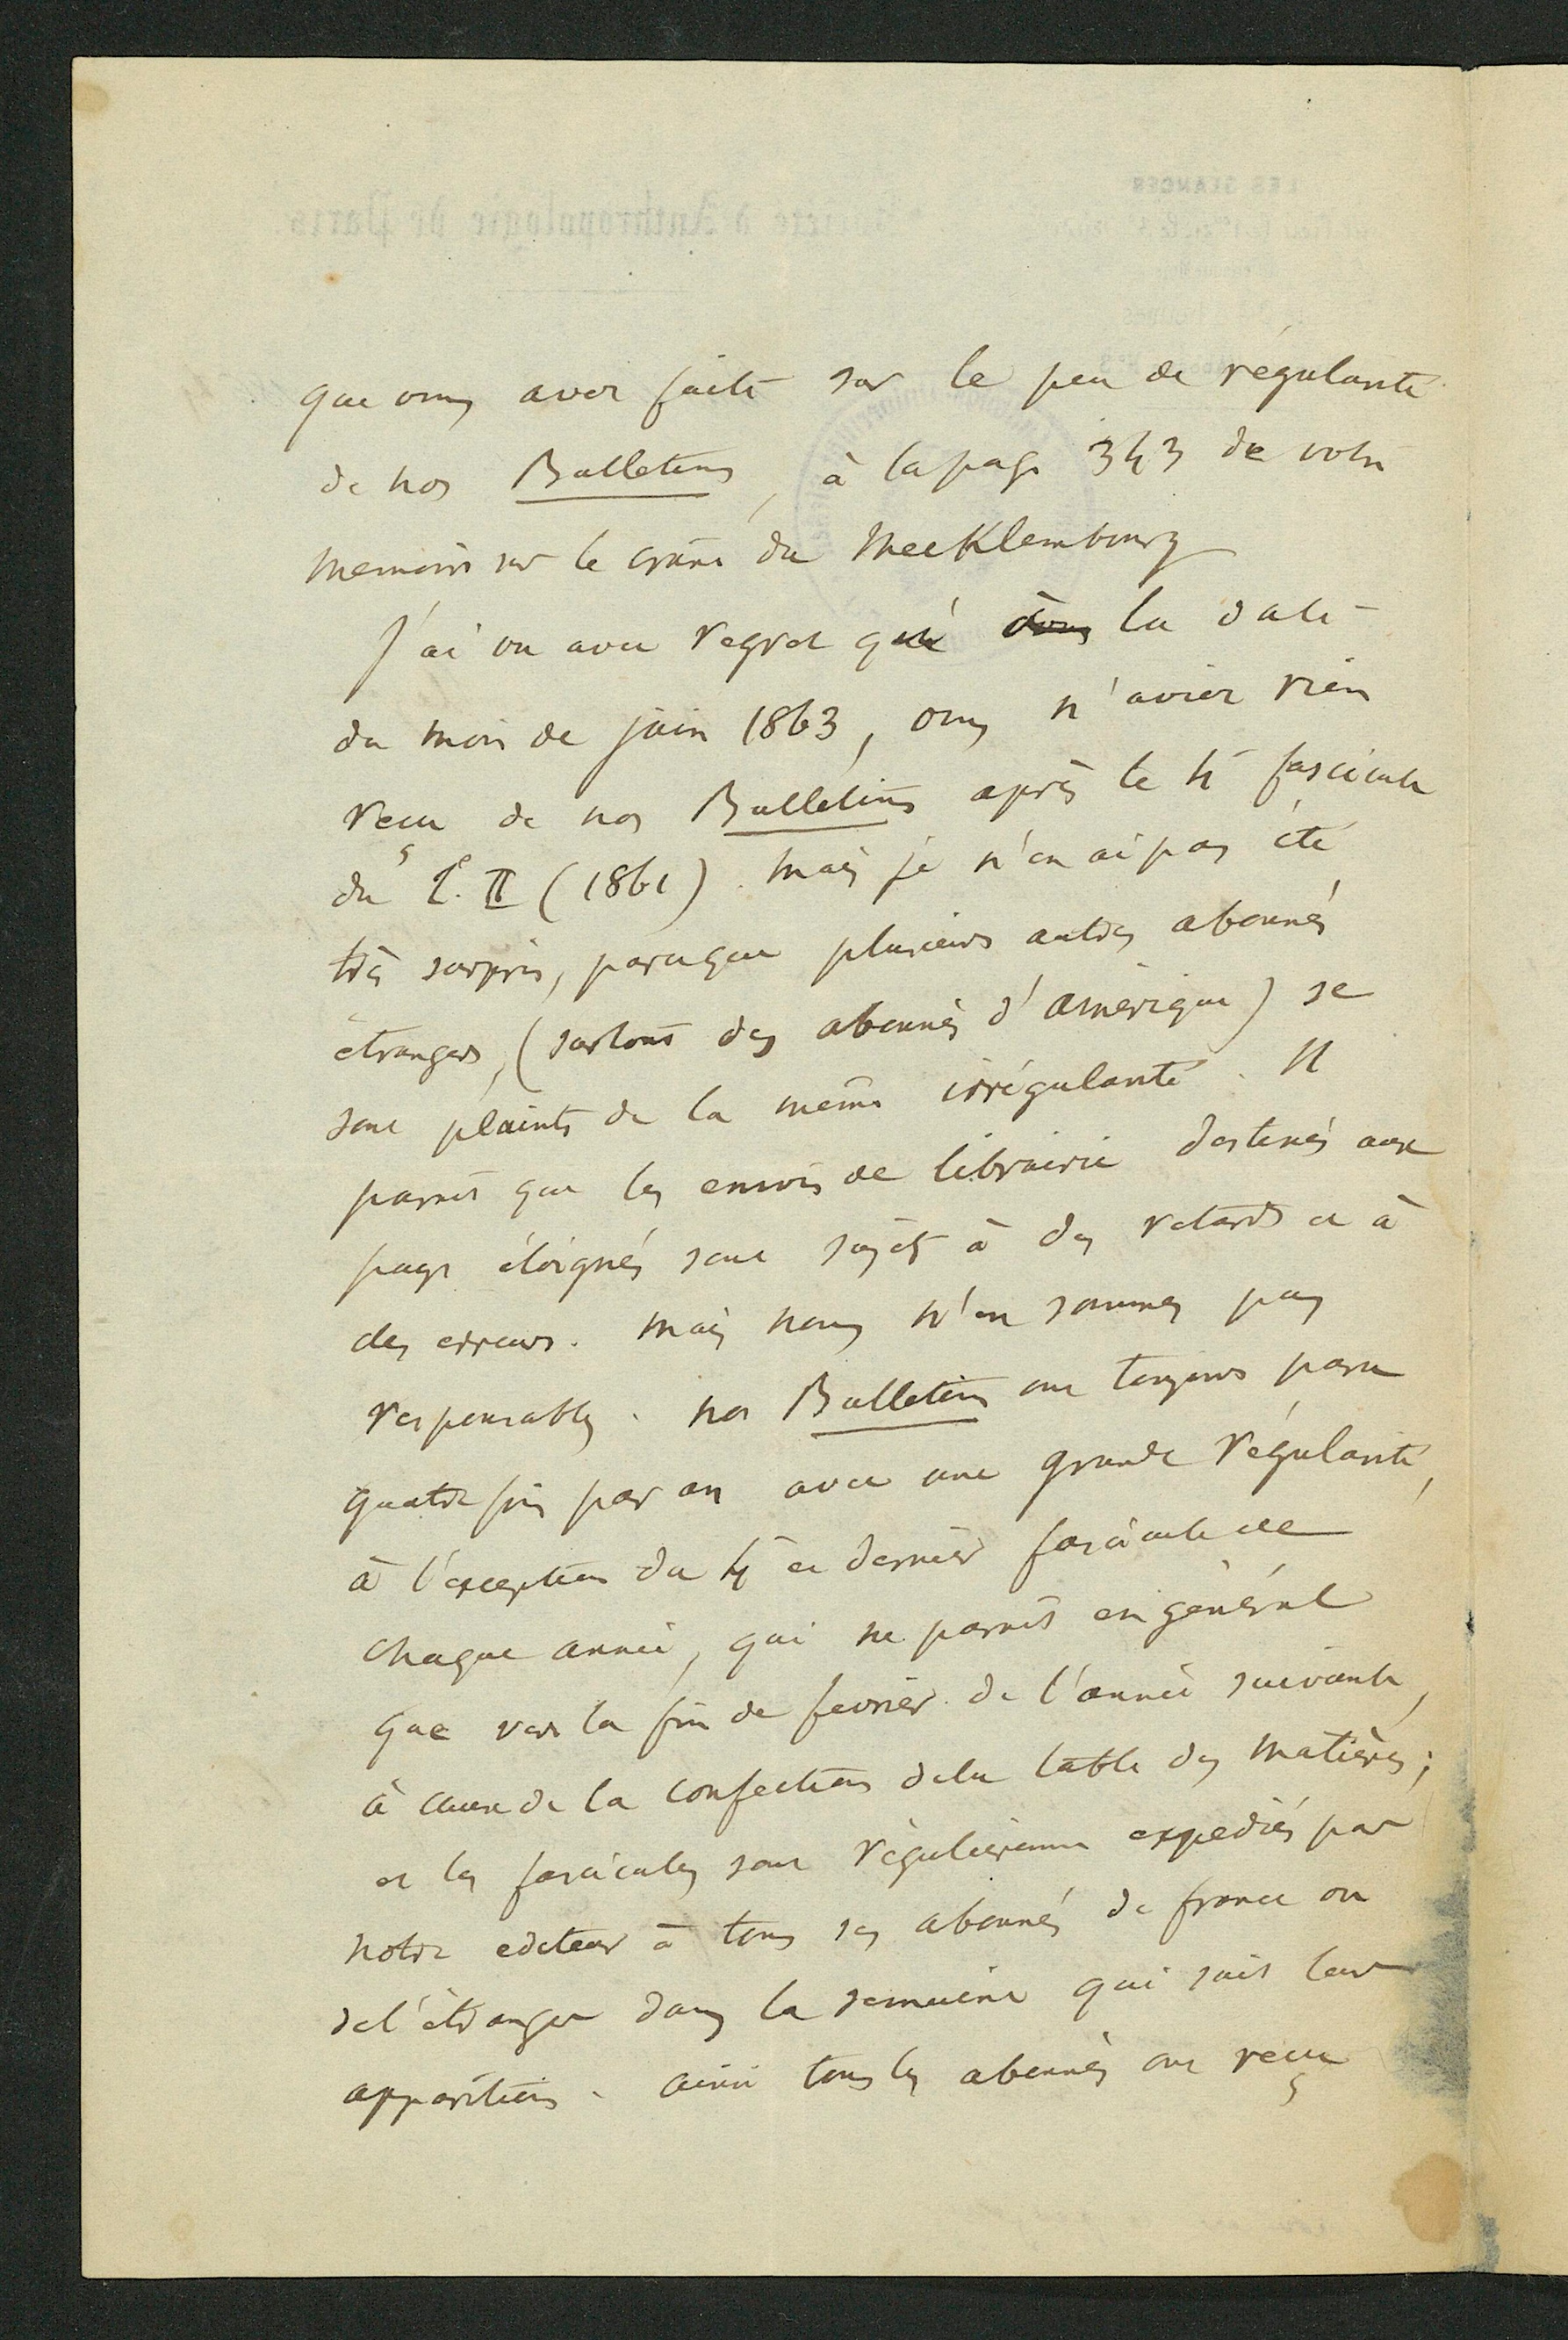 que vous avez faite sur le peu de régularité
de nos Bulletins, à la page 343 de votre
memoire sur le crâne du Mecklembourg
J'ai vu avec regret qu'à la date
du mois de juin 1863, vous n'aviez rien
reçu de nos Bulletins après le 4e fascicule
du t. II (1861). Mais je n'en ai pas été
très surpris, parceque plusieurs autres abonnés
étrangers, (surtout des abonnés d'amérique) se
sont plaints de la même irrégularité. Il
parait que les envois de librairie destinés aux
pays éloignés sont sujets à des retards et à
des erreurs. Mais nous n'en sommes pas
responsables. nos Bulletins ont toujours paru
quatre fois par an avec une grande régularité,
à l'exception du 4e et dernier fascicule de
chaque année, qui ne parait en général
que vers la fin de fevrier de l'année suivante,
à cause de la confection de la table des matières;
et les fascicules sont régulièrement expediés par
notre editeur à tous ses abonnés de france ou
de l'étranger dans la semaine qui suit leur
apparition. ainsi tous les abonnés ont reçu